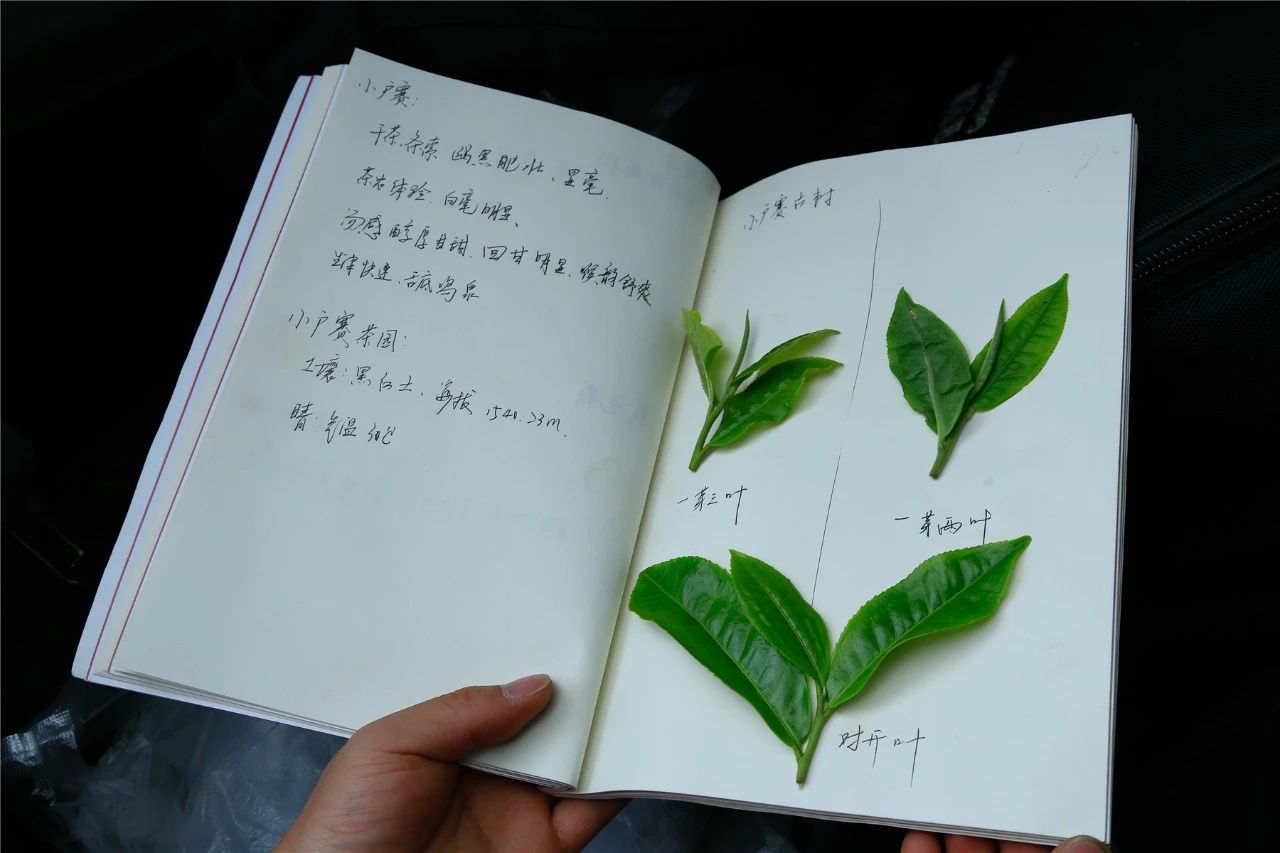 小户赛：
干茶、条索 黝黑肥壮、显毫.
茶芽体验. 白毫明显、
汤感 醇厚甘甜. 回甘明显、喉韵舒爽
生津快速、舌底鸣泉
小户赛茶园：
土壤：黑红土、海拔 1540.23m.
晴：气温 30℃
小户赛古树
一芽三叶
一芽两叶
对开叶